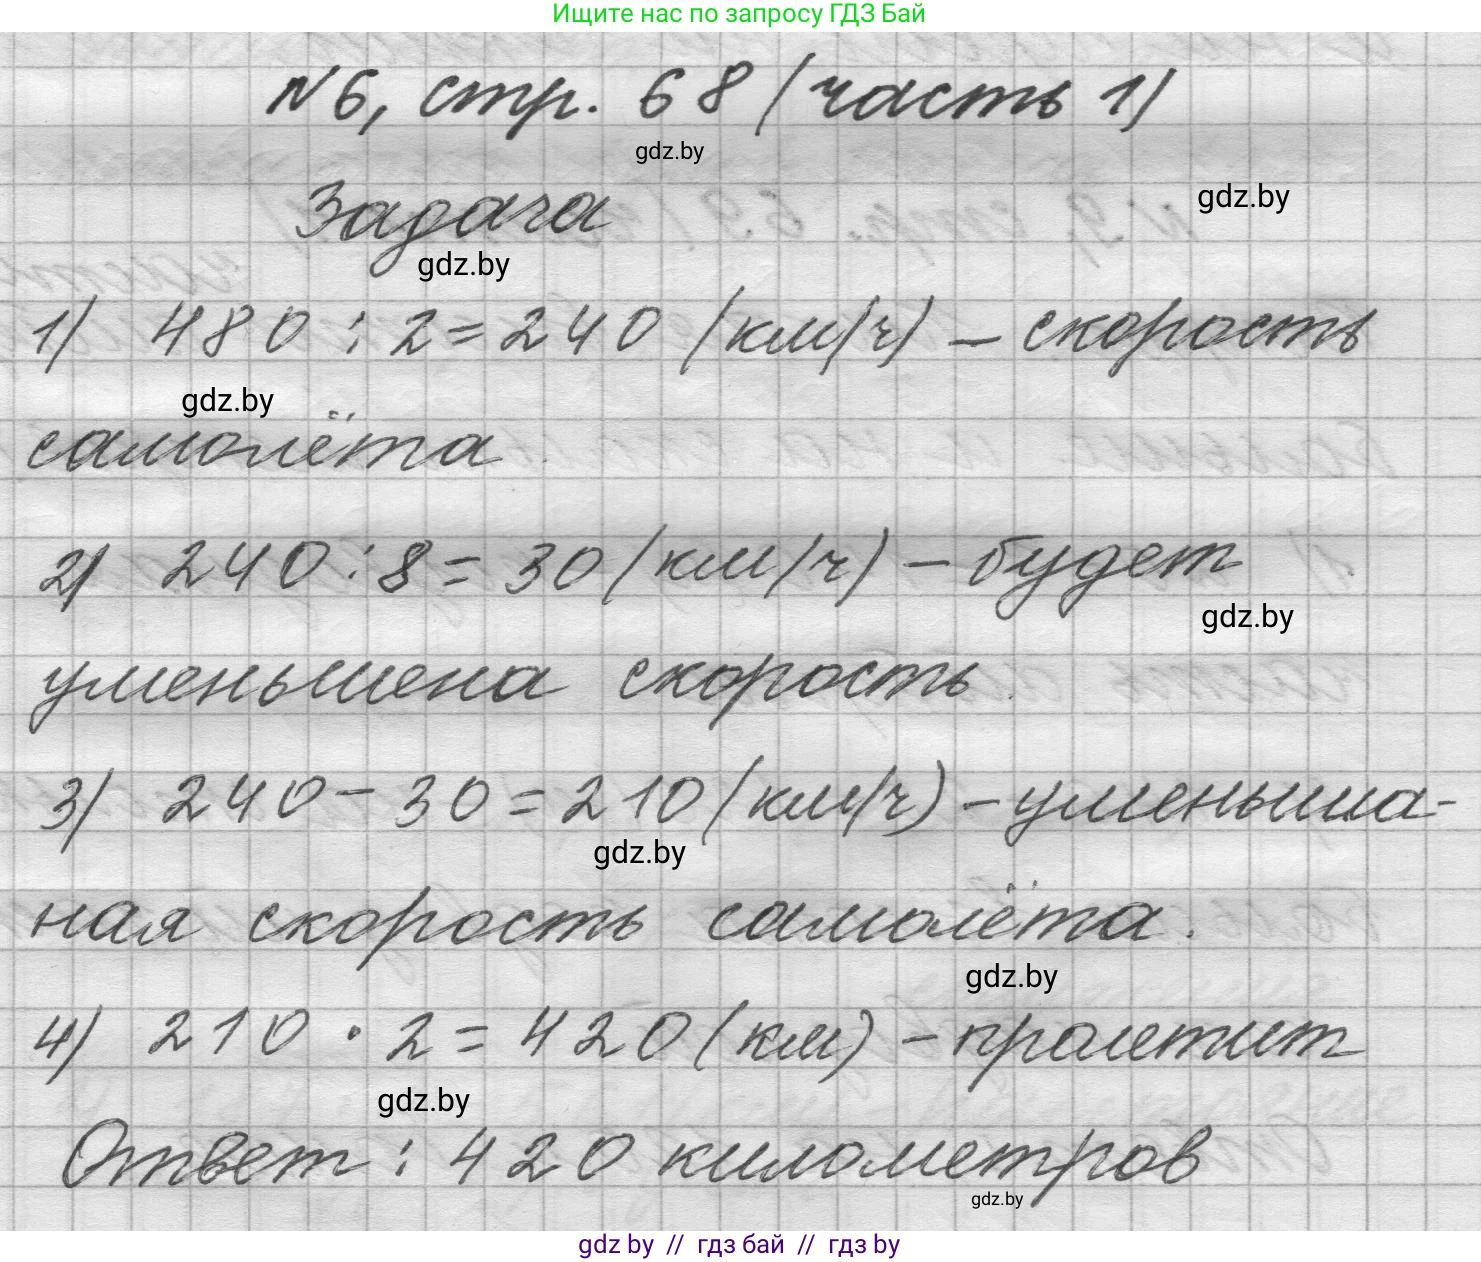 Ищите нас по запросу ГДЗ Бай
№6, стр. 68 (часть 1)
gdz.by
Задача
gdz.by
gdz.by
1) 480 : 2 = 240 (км/ч) – скорость
gdz.by
самолёта
2) 240 : 8 = 30 (км/ч) – будет
gdz.by
уменьшена скорость.
3) 240 – 30 = 210 (км/ч) – уменьша-
gdz.by
ная скорость самолёта.
gdz.by
4) 210 · 2 = 420 (км) – пролетит
gdz.by
Ответ : 420 километров
gdz.by
gdz by // гдз бай // гдз by